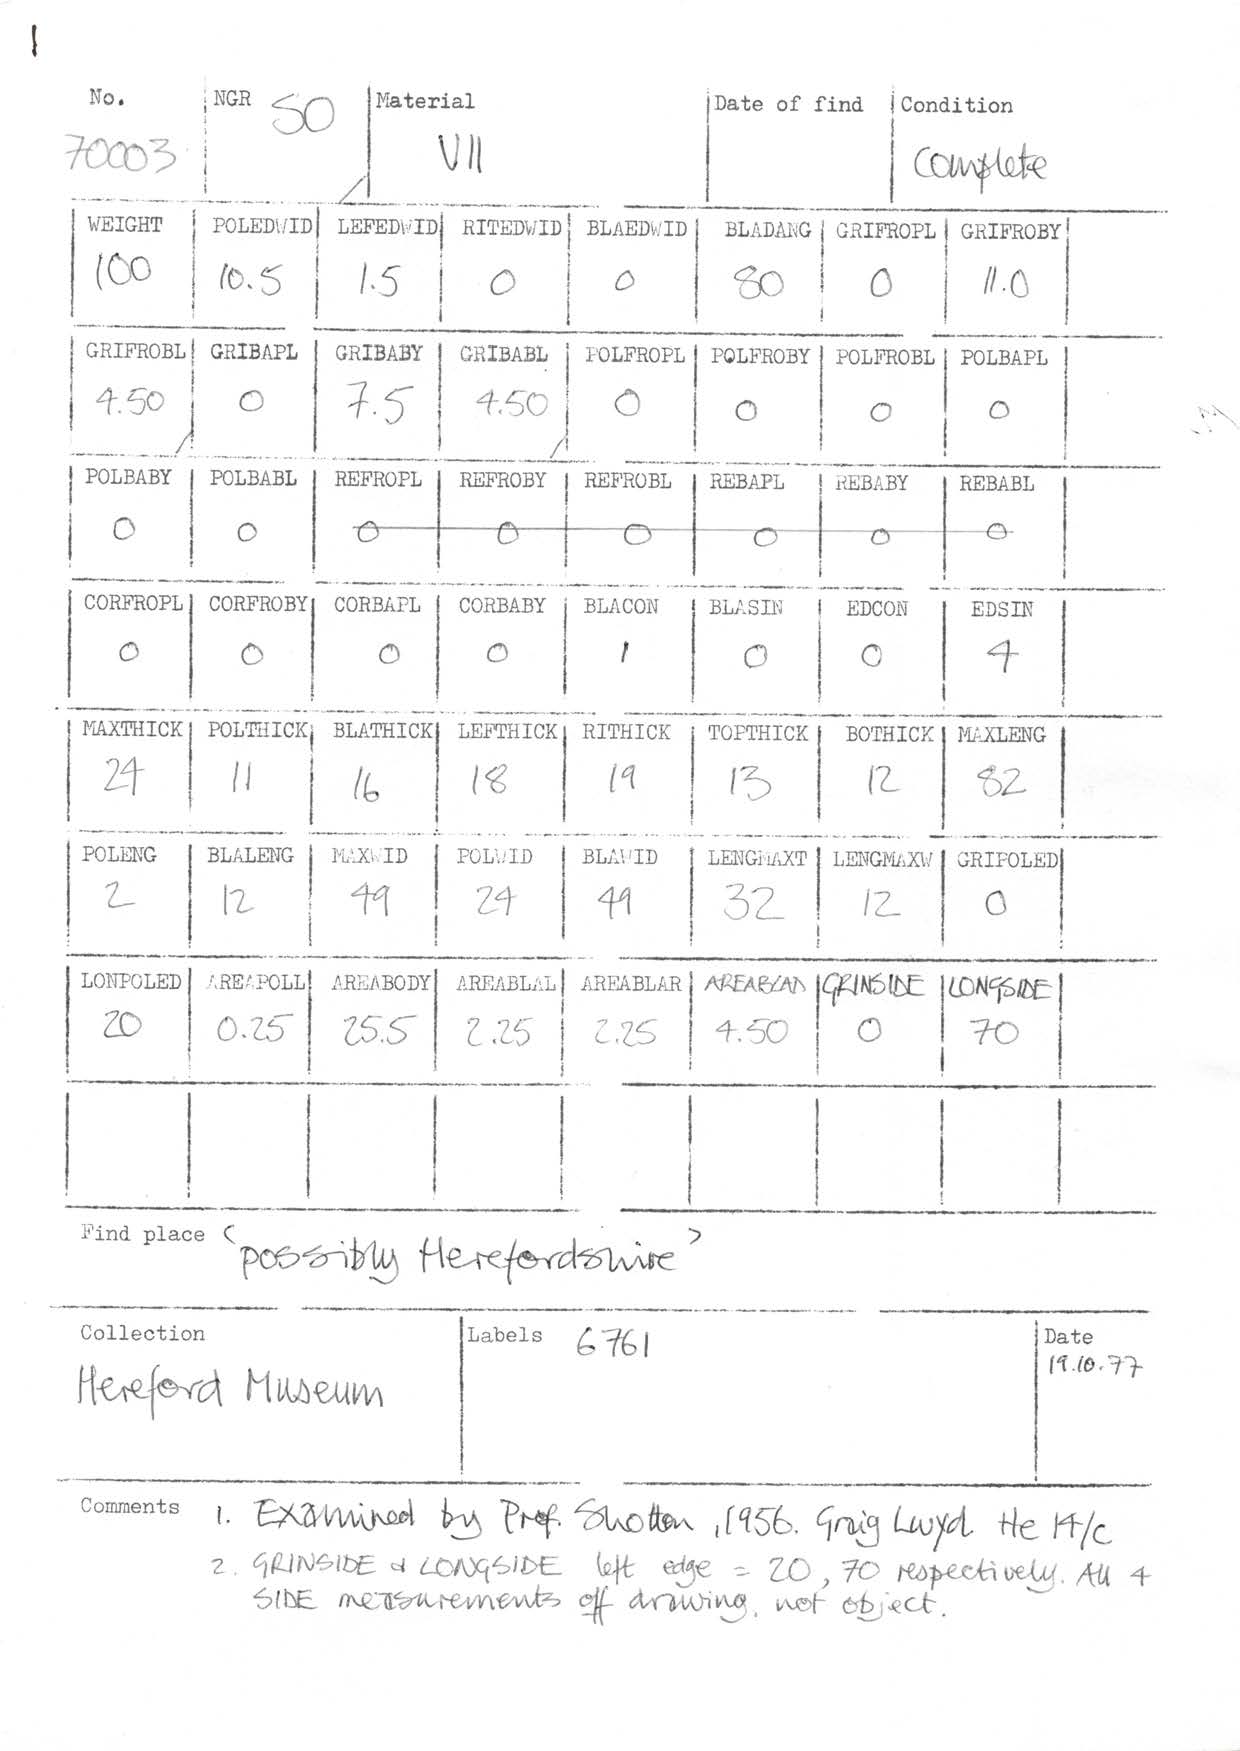 1
No. NGR SO Material Date of find Condition
70003 VII Complete
WEIGHT POLEDWID LEFEDWID RITEDWID BLAEDWID BLADANG GRIFROPL GRIFROBY
100 10.5 1.5 0 0 80 0 11.0
GRIFROBL GRIBAPL GRIBABY GRIBABL POLFROPL POLFROBY POLFROBL POLBAPL
4.50 0 7.5 4.50 0 0 0 0
POLBABY POLBABL REFROPL REFROBY REFROBL REBAPL REBABY REBABL
0 0 0 0 0 0 0 0
CORFROPL CORFROBY CORBAPL CORBABY BLACON BLASIN EDCON EDSIN
0 0 0 0 1 0 0 4
MAXTHICK POLTHICK BLATHICK LEFTHICK RITHICK TOPTHICK BOTHICK MAXLENG
24 11 16 18 19 13 12 82
POLENG BLALENG MAXWID POLWID BLAWID LENGMAXT LENGMAXW GRIPOLED
2 12 49 24 49 32 12 0
LONPOLED AREAPOLL AREABODY AREABLAL AREABLAR AREABLAD GRINSIDE LONGSIDE
20 0.25 25.5 2.25 2.25 4.50 0 70
Find place (possibly Herefordshire)
Collection Labels 6761 Date
Hereford Museum 19.10.77
Comments 1. Examined by Prof. Shotton, 1956. Graig Lwyd. He 14/c
2. GRINSIDE & LONGSIDE left edge = 20, 70 respectively. All 4
SIDE measurements off drawing, not object.